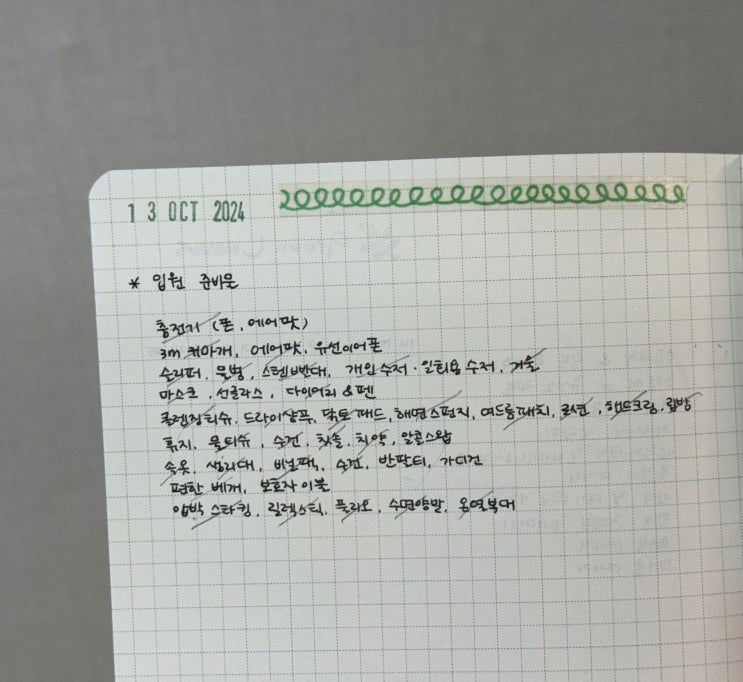 13 OCT 2024
* 입원 준비물
충전기 (폰, 에어팟)
3m 귀마개, 에어팟, 유선이어폰
슬리퍼, 물병, 스텐빨대, 개인수저·일회용 수저, 거울
마스크, 선글라스, 다이어리 & 펜
클렌징티슈, 드라이샴푸, 닥토패드, 해면스펀지, 여드름패치, 로션, 핸드크림, 립밤
휴지, 물티슈, 수건, 칫솔, 치약, 알콜스왑
속옷, 생리대, 비닐팩, 수건, 반팔티, 가디건
편한 베개, 보호자 이불
압박 스타킹, 릴렉스티, 폴리오, 수면양말, 온열복대